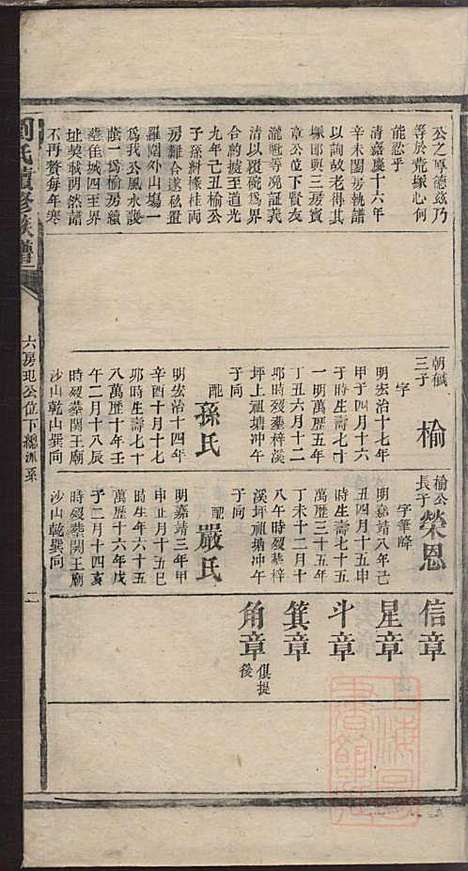 公之厚德茲乃
等於荒塚心何
能忍乎
清嘉慶十六年
辛未闔房執譜
以詢故老得其
塚卽與三房賓
章公位下賢友
瀧賍等立證義
清以覆碗爲界
合約援至道光
九年己丑榆公
子孫紏椽桂兩
房難合遂私置
羅圍外山塲一
爲我公風水護
蔭一爲榆房續
塟佳城四至界
址契載朗然譜
不再贅每年寒
朝椷
三子
榆
字
明宏治十七年
甲子四月十六
子時生壽七十
一明萬歷五年
丁丑六月十二
卯時歿塟梓溪
坪上祖塘冲午
子向
配
孫氏
明宏治十四年
辛酉十月十七
卯時生壽七十
八萬歷十年壬
午二月十八辰
時歿塟関王廟
沙山乾山巽向
榆公
長子
榮恩
字筆峰
明嘉靖八年己
丑四月十五申
時生壽七十九
萬歷三十五年
丁未十二月十
八午時歿塟梓
溪坪祖塘冲午
子向
配
嚴氏
明嘉靖三年甲
申正月十五巳
時生年六十五
萬歷十六年戊
子二月十四亥
時歿塟関王廟
沙山乾巽向
信章
星章
斗章
箕章
角章
俱提
後
劉氏續修族譜
六房玘公位下總派系
二